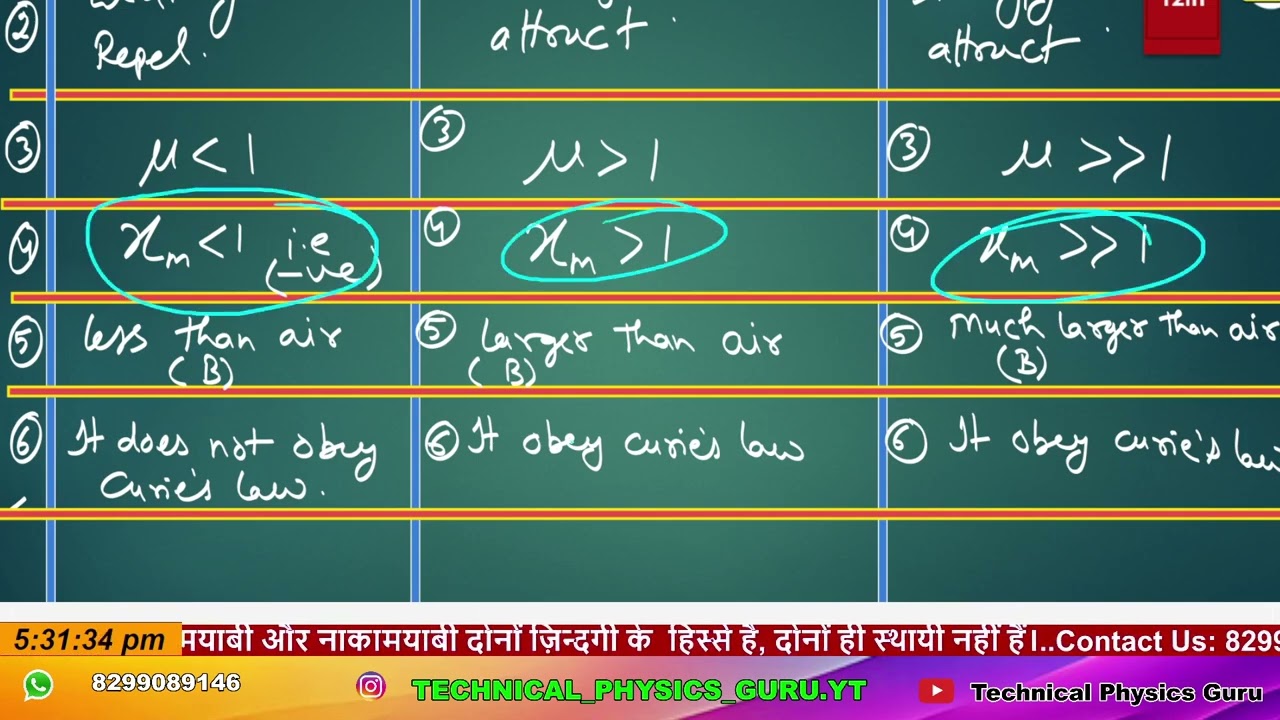 ②
Repel.
attruct
attruct
12th
③ μ < 1
③ μ > 1
③ μ >> 1
④ xm < 1 i.e (-ve)
④ xm > 1
④ xm >> 1
⑤ less than air (B)
⑤ larger than air (B)
⑤ Much larger than air (B)
⑥ It does not obey
Curie's law.
⑥ It obey curie's law
⑥ It obey curie's law
5:31:34 pm
मयाबी और नाकामयाबी दोनों ज़िन्दगी के हिस्से है, दोनों ही स्थायी नहीं हैं।..Contact Us: 8299
8299089146
TECHNICAL_PHYSICS_GURU.YT
Technical Physics Guru